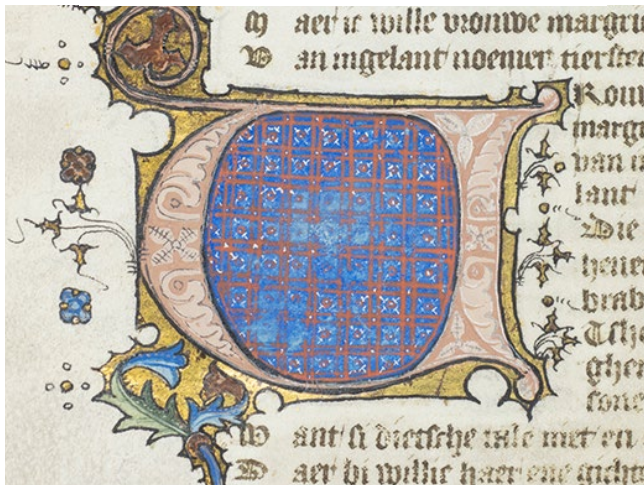 M aer ic wille vrouwe margri
V an ingelant noemen tierste
Rouw
marg
van in
lant
Die
heue
brab
Tshe
ghen
sone
W ant si dietsche tale niet en
D aer bi willic haer ene gicht